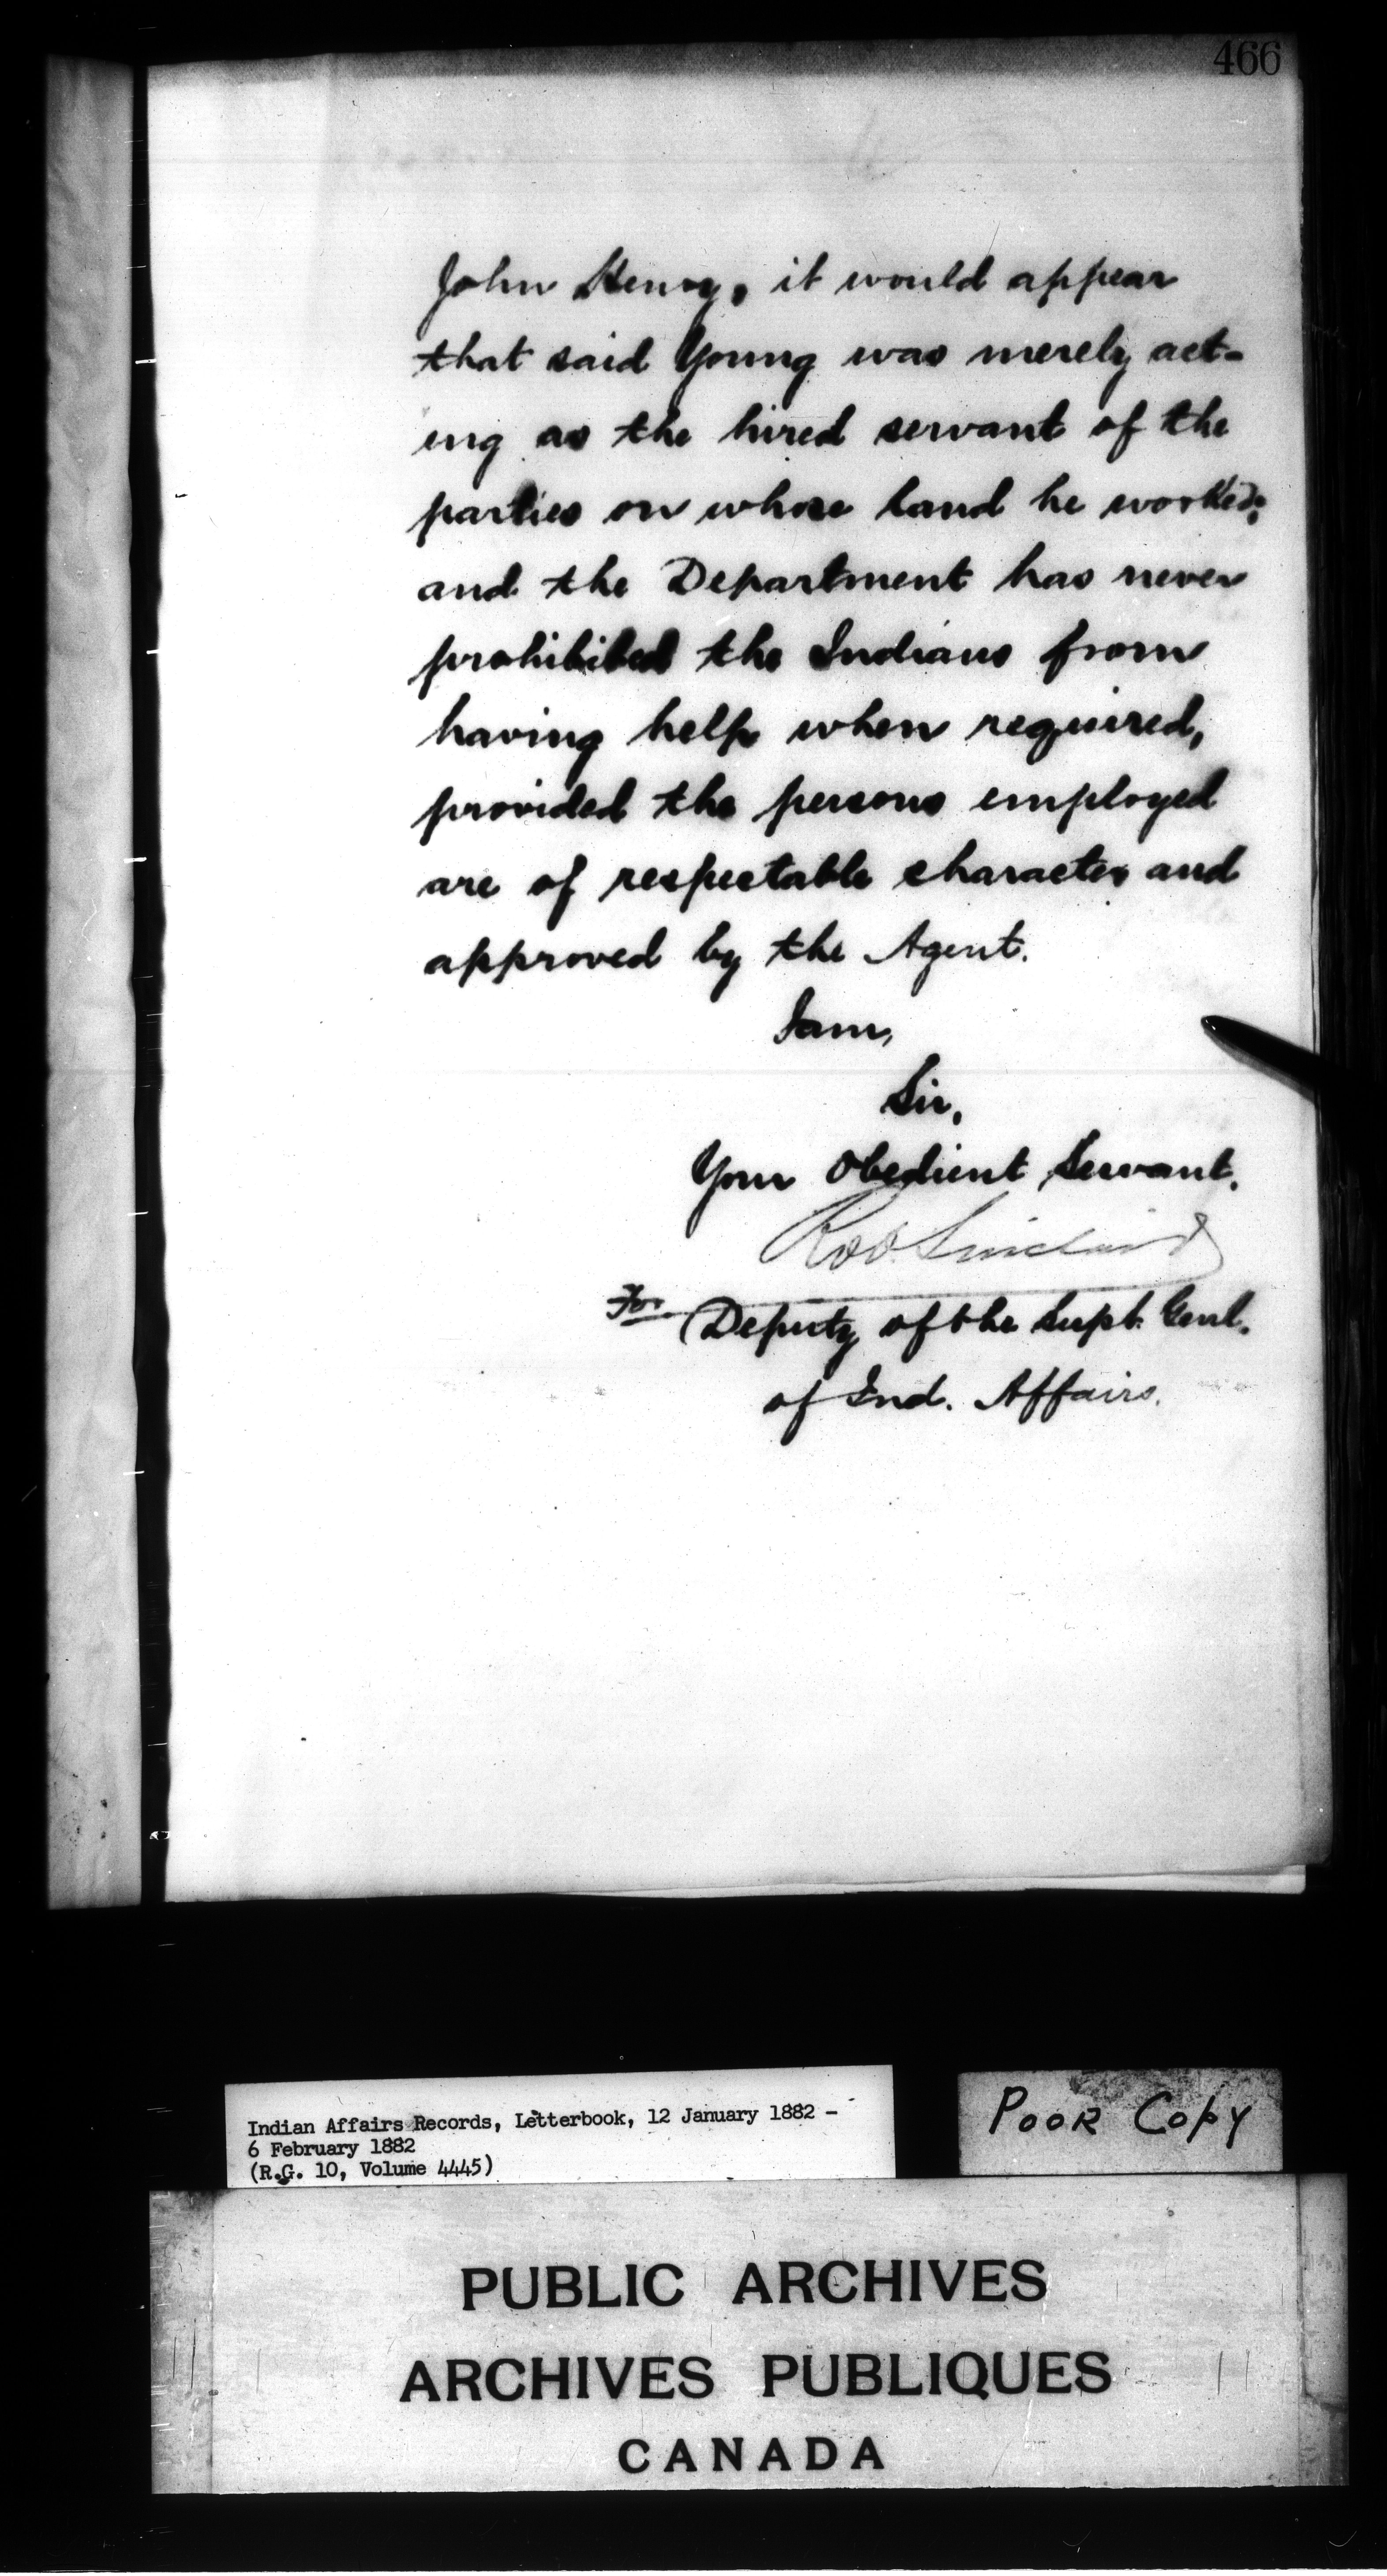 466
John Henry, it would appear
that said Young was merely act-
ing as the hired servant of the
parties on whose land he worked;
and the Department has never
prohibited the Indians from
having help when required,
provided the persons employed
are of respectable character and
approved by the Agent.
I am,
Sir,
Your Obedient Servant.
Rob Sinclair
For Deputy of the Supt. Genl.
of Ind. Affairs.
Indian Affairs Records, Letterbook, 12 January 1882 -
6 February 1882
(R.G. 10, Volume 4445)
POOR COPY
PUBLIC ARCHIVES
ARCHIVES PUBLIQUES
CANADA